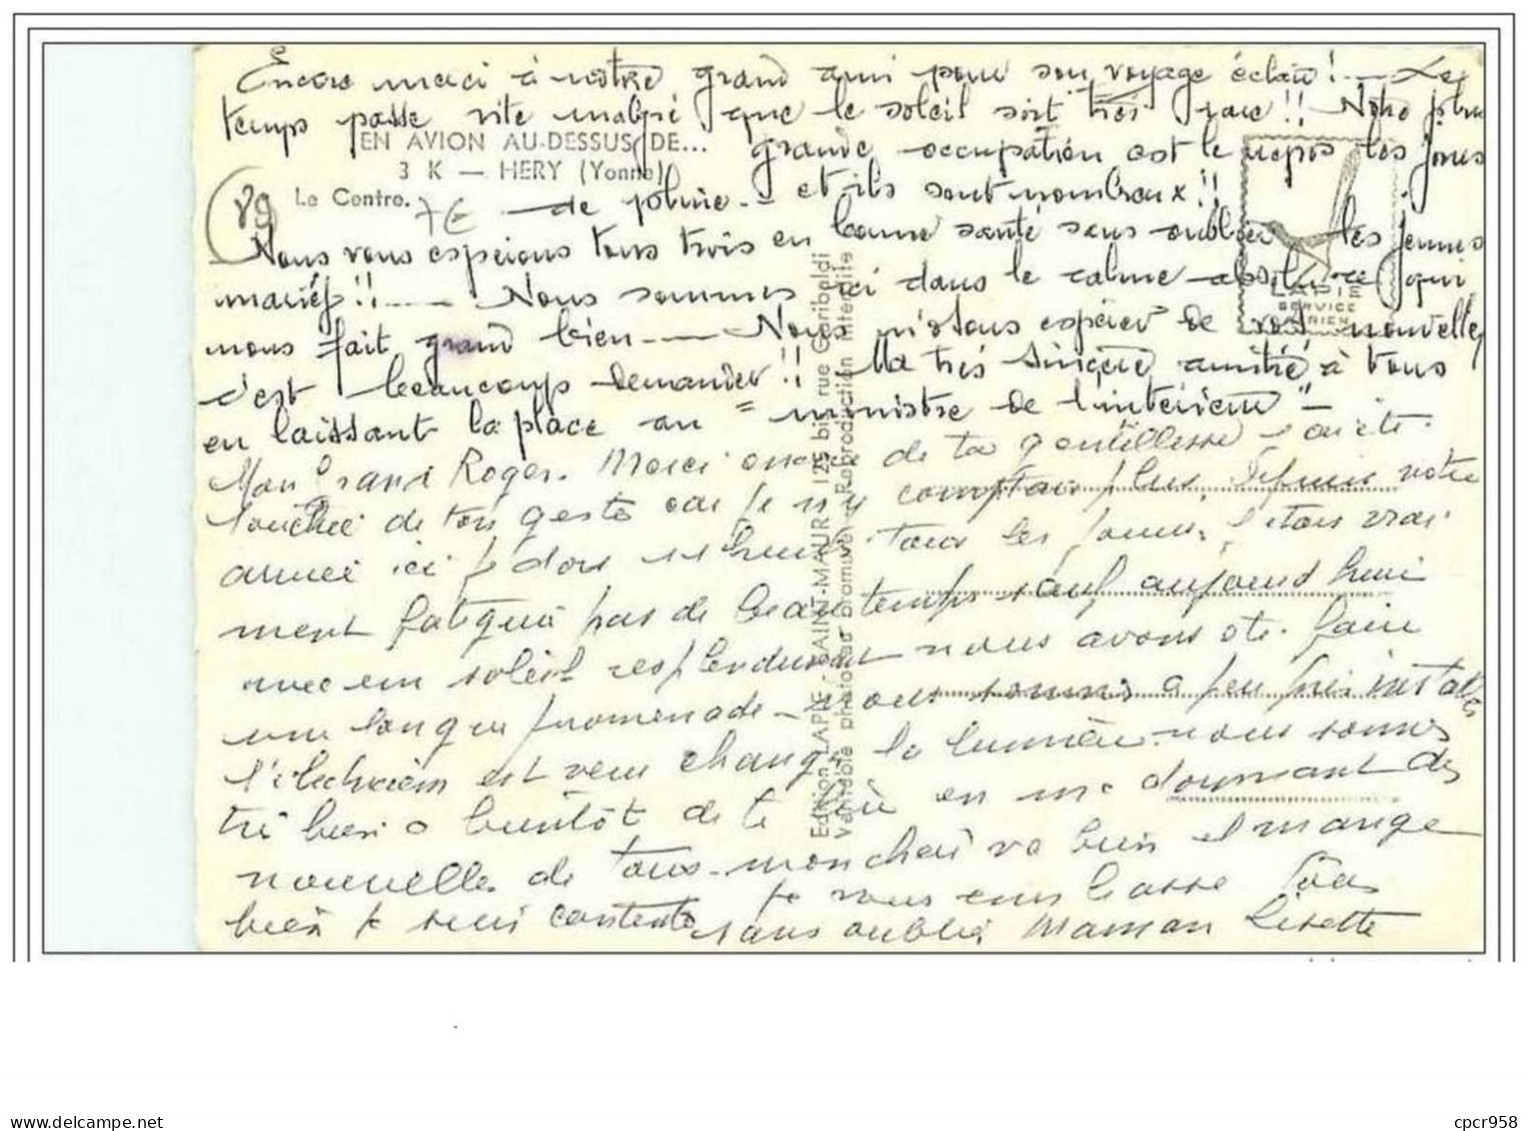 Encore merci à notre grand ami pour son voyage éclair! — Le
temps passe vite malgré que le soleil soit très rare!! Notre plus
EN AVION AU-DESSUS DE...
grande occupation est le repos les jours
3 K — HERY (Yonne)
Le Centre.
89
7E
de pluie -- et ils sont nombreux!!
Nous vous espérons tous trois en bonne santé sans oublier les jeunes
mariés!! — Nous sommes ici dans le calme absolu ce qui
nous fait grand bien — Nous n'osons espérer de vos nouvelles
c'est beaucoup demander!! Ma très sincère amitié à tous
en laissant la place au "ministre de l'intérieur" -
LAPIE
SERVICE
AERIEN
Mon Grand Roger. Merci encore de ta gentillesse j'ai été
touchée de ton geste car je n'y comptais plus. Depuis notre
arrivée ici je dors heures tous les jours, j'étais vrai
ment fatiguée pas de beau temps sauf aujourd'hui
avec un soleil resplendissant nous avons été faire
une longue promenade - nous sommes a peu près installés
l'électricien est venu changé la lumière nous sommes
très bien a bientôt de te lire en me donnant des
nouvelles de tous - mon cheri va bien et mange
bien je suis contente je vous embrasse tous
sans oublier Maman Lisette
Edition LAPIE - SAINT-MAUR 125 bis, rue Garibaldi
Véritable photo au bromure - Reproduction interdite
cpcr958